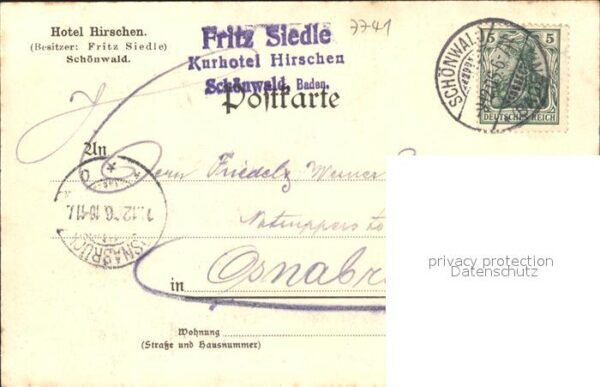 Hotel Hirschen.
(Besitzer: Fritz Siedle)
Schönwald.
7741
Fritz Siedle
Kurhotel Hirschen
Schönwald, Baden.
Postkarte
SCHÖNWALD
5 5
DEUTSCHES REICH
An
Herrn Friedel Werner
OSNABRÜCK
in Osnabr
privacy protection
Datenschutz
Wohnung
(Straße und Hausnummer)